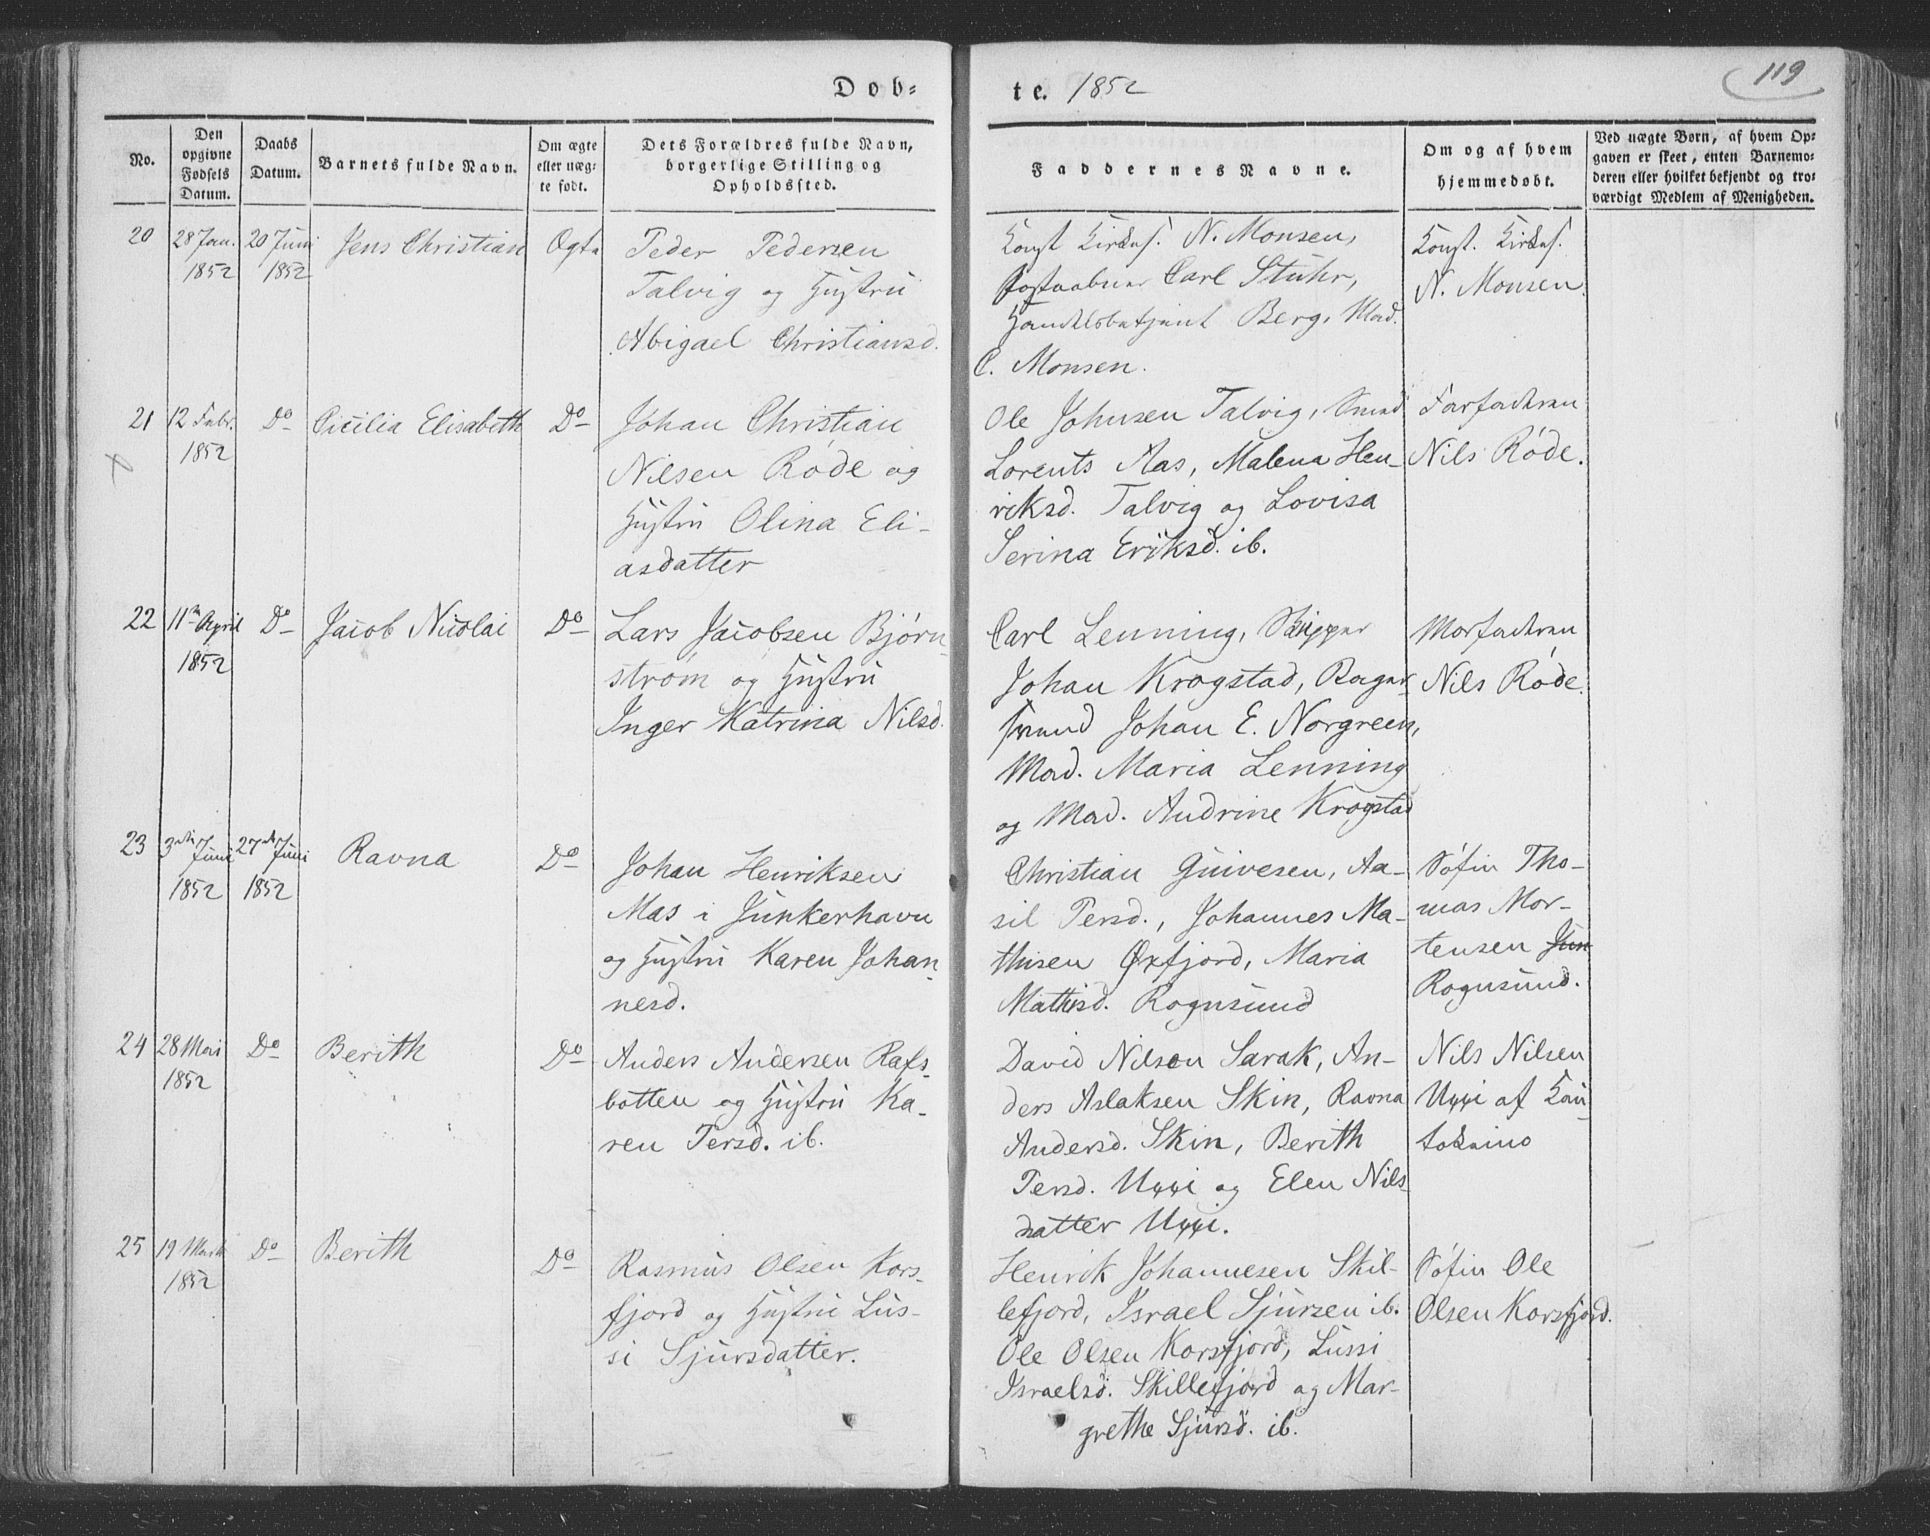 Døb-
te. 1852
119
No.
Den opgivne Fødsels Datum.
Daabs Datum.
Barnets fulde Navn.
Om ægte eller uægte født.
Dets Forældres fulde Navn, borgerlige Stilling og Opholdssted.
Faddernes Navne.
Om og af hvem hjemmedøbt.
Ved uægte Børn, af hvem Opgaven er skeet, enten Barnemoderen eller hvilket bekjendt og troværdigt Medlem af Menigheden.
20
28 Jan.
1852
20 Juni
1852
Jens Christian
Ægte
Peder Pedersen
Talvig og Hustru
Abigael Christiansd.
Const Kirkes. N. Monsen,
Postaabner Carl Stuhr,
Handelsbetjent Berg, Mad.
C. Monsen.
Const. Kirkes.
N. Monsen.
21
12 Febr.
1852
Do
Cicilia Elisabeth
Do
Johan Christian
Nilsen Røde og
Hustru Olina Eli-
asdatter
Ole Johnsen Talvig, Smed
Lorents Aas, Malena Hen-
riksd. Talvig og Lovisa
Serina Eriksd. ib.
Farfaderen
Nils Røde.
22
11te April
1852
Do
Jacob Nicolai
Do
Lars Jacobsen Bjørn-
strøm og Hustru
Inger Katrina Nilsd.
Carl Lenning, Skipper
Johan Krogstad, Bager
svend Johan E. Norgreen,
Mad. Maria Lenning
og Mad. Andrine Krogstad
Morfaderen
Nils Røde.
23
3die Juni
1852
27de Juni
1852
Ravna
Do
Johan Henriksen
Aas i Junkerhavn
og Hustru Karen Johan-
nesd.
Christian Guivesen, Aa-
sil Persd., Johannes Ma-
thisen Øxfjord, Maria
Mathisd. Rognsund
Søfin Tho-
mas Mor-
tensen Jun
Rognsund.
24
28 Mai
1852
Do
Berith
Do
Anders Andersen Rafs-
botten og Hustru Ka-
ren Persd. ib.
David Nilsen Sarak, An-
ders Aslaksen Skin, Ravna
Andersd. Skin, Berith
Persd. Uxxi og Elen Nils-
datter Uxxi.
Nils Nilsen
Uxxi af Kau-
tokeino
25
19 Marts
1852
Do
Berith
Do
Rasmus Olsen Kors-
fjord og Hustru Lus-
si Sjursdatter.
Henrik Johannesen Skil-
lefjord, Israel Sjursen ib.
Ole Olsen Korsfjord, Lussi
Israelsd. Skillefjord og Mar-
grethe Sjursd. ib.
Søfin Ole
Olsen Korsfjord.